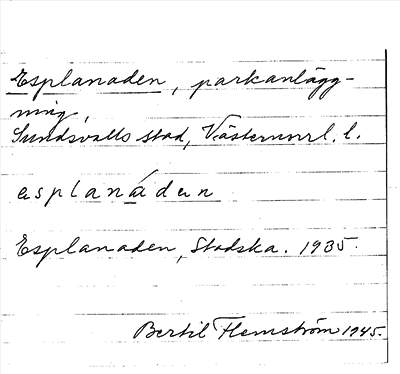 Esplanaden, parkanlägg-
ning,
Sundsvalls stad, Västernorrl. l.
esplanádan
Esplanaden, Stadska. 1935.
Bertil Flemström 1945.